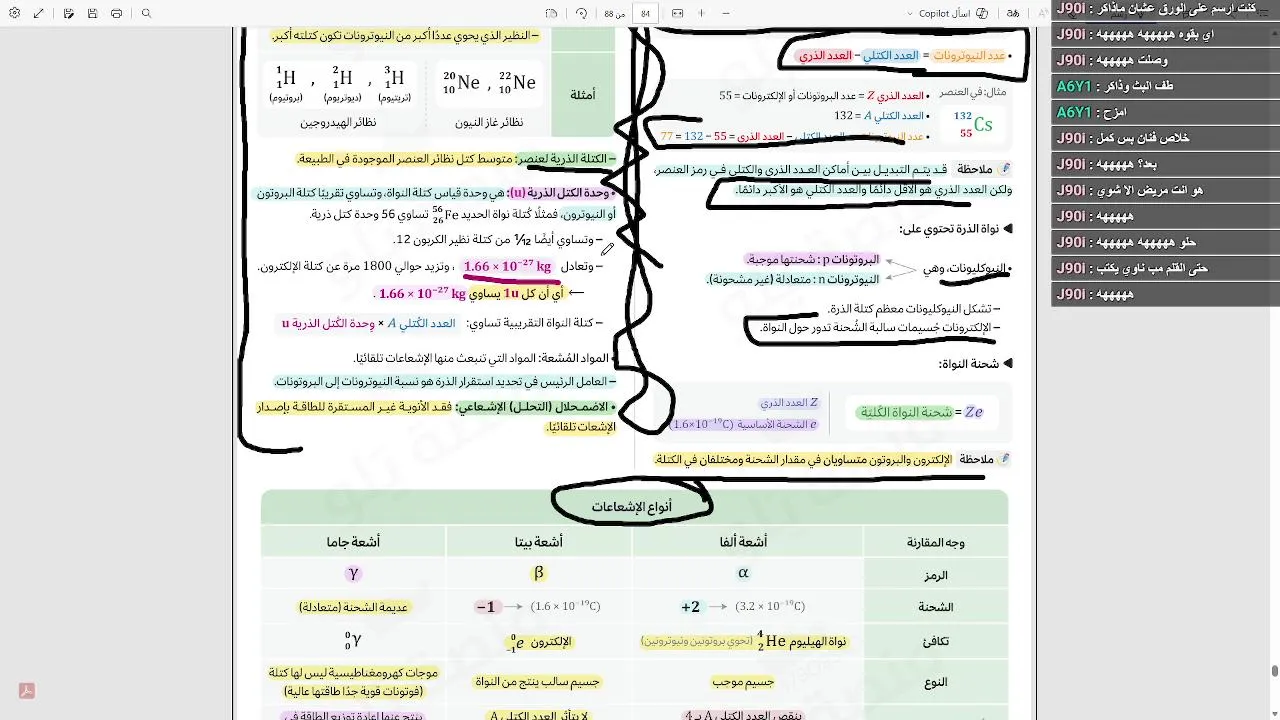 من 88 84
اسأل Copilot
J90I : كنت ارسم على الورق عشان ماذاكر
J90I : اي بقوه هههههه ههههه
J90I : وصلت ههههه
A6Y1 : طف البث وذاكر
A6Y1 : امزح
J90I : خلاص فنان بس كمل
J90I : بعد؟ ههههه
J90I : هو انت مريض الا شوي
J90I : ههههه
J90I : حلو ههههه ههههه
J90I : حتى القلم مب ناوي يكتب
J90I : ههههه
• عدد النيوترونات = العدد الكتلي – العدد الذري
مثال: في العنصر
132
55 Cs
• العدد الذري Z = عدد البروتونات أو الإلكترونات = 55
• العدد الكتلي A = 132
العدد الكتلي – العدد الذري = 55 – 132 = 77
ملاحظة قد يتم التبديل بين أماكن العدد الذري والكتلي في رمز العنصر،
ولكن العدد الذري هو الأقل دائمًا والعدد الكتلي هو الأكبر دائمًا.
نواة الذرة تحتوي على:
• النيوكليونات، وهي
البروتونات p : شحنتها موجبة.
النيوترونات n : متعادلة (غير مشحونة).
– تشكل النيوكليونات معظم كتلة الذرة.
– الإلكترونات جُسيمات سالبة الشُحنة تدور حول النواة.
شحنة النواة:
شحنة النواة الكُليّة = Ze
Z العدد الذري
e الشحنة الأساسية (1.6×10⁻¹⁹C)
ملاحظة الإلكترون والبروتون متساويان في مقدار الشحنة ومختلفان في الكتلة.
– النظير الذي يحوي عددًا أكبر من النيوترونات تكون كتلته أكبر.
أمثلة
²⁰₁₀Ne , ²²₁₀Ne
نظائر غاز النيون
¹₁H ²₁H , ³₁H
(بروتيوم) (ديوتريوم) (تريتيوم)
نظائر الهيدروجين
– الكتلة الذرية لعنصر: متوسط كتل نظائر العنصر الموجودة في الطبيعة.
• وحدة الكتل الذرية (u): هي وحدة قياس كتلة النواة، وتساوي تقريبًا كتلة البروتون
أو النيوترون، فمثلًا كُتلة نواة الحديد ⁵⁶₂₆Fe تساوي 56 وحدة كتل ذرية.
– وتساوي أيضًا 1⁄12 من كتلة نظير الكربون 12.
– وتعادل 1.66 × 10⁻²⁷ kg ، وتزيد حوالي 1800 مرة عن كتلة الإلكترون.
← أي أن كل 1u يساوي 1.66 × 10⁻²⁷ kg .
– كتلة النواة التقريبية تساوي: العدد الكُتلي A × وحدة الكُتل الذرية u
• المواد المُشعة: المواد التي تنبعث منها الإشعاعات تلقائيًا.
– العامل الرئيس في تحديد استقرار الذرة هو نسبة النيوترونات إلى البروتونات.
• الاضمحلال (التحلل) الإشعاعي: فقد الأنوية غير المستقرة للطاقة بإصدار
الإشعات تلقائيًا.
أنواع الإشعاعات
وجه المقارنة أشعة ألفا أشعة بيتا أشعة جاما
الرمز α β γ
الشحنة +2 → (3.2 × 10⁻¹⁹C) −1 → (1.6 × 10⁻¹⁹C) عديمة الشحنة (متعادلة)
تكافئ نواة الهيليوم ⁴₂He (تحوي بروتونين ونيوترونين) الإلكترون ⁰₋₁e ⁰₀γ
النوع جسيم موجب جسيم سالب ينتج من النواة موجات كهرومغناطيسية ليس لها كتلة
(فوتونات قوية جدًا طاقتها عالية)
ينقص العدد الكتلي A بـ 4 لا يتأثر العدد الكتلي A ينتج عنها إعادة توزيع الطاقة في